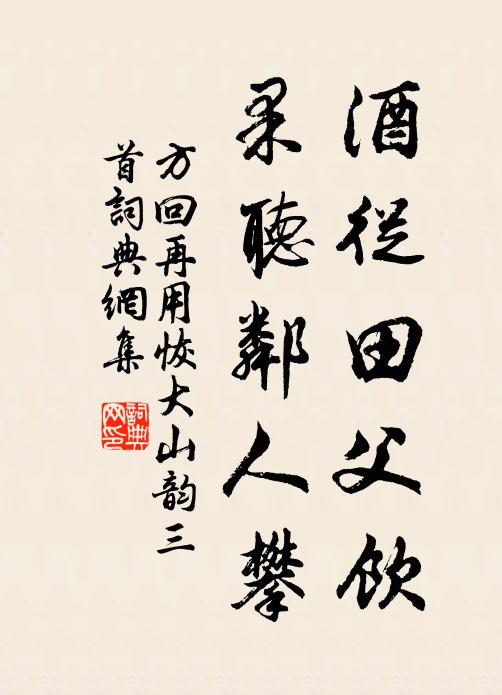 酒從田父飲
果聽鄰人攀
方回再用恢大山韵三
首詞典網集
詞典
网印